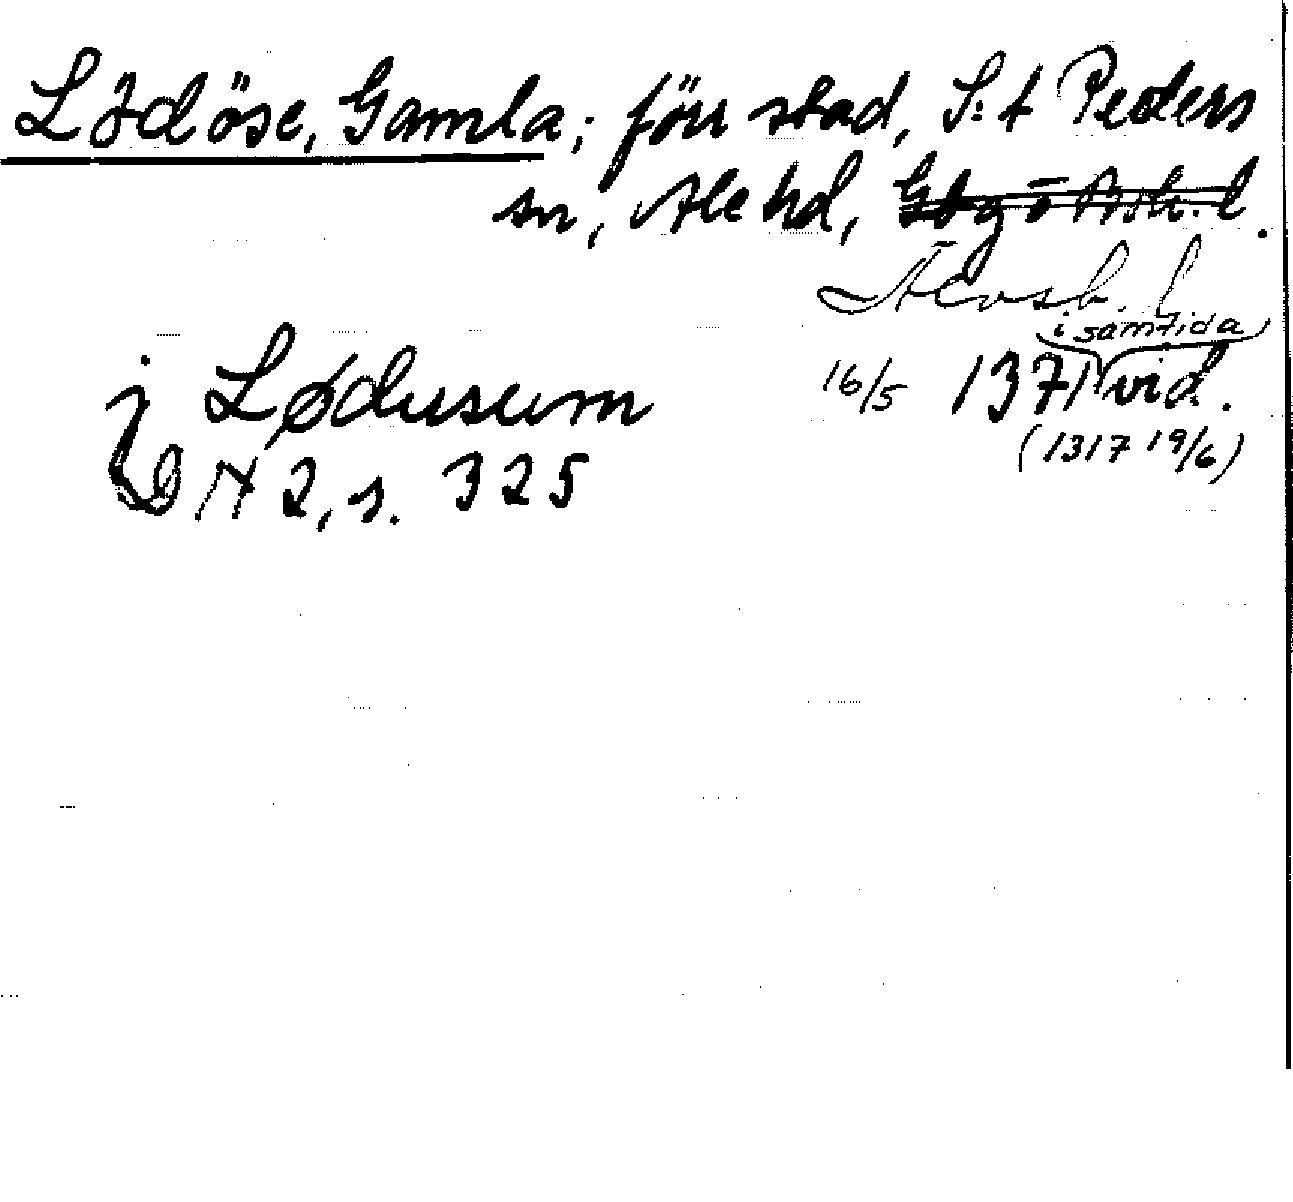 Lödöse, Gamla; förr stad, S:t Peders
sn, Ale hd, Gbg o Boh. l.
Älvsb. l
i samtida
j Lødusum 16/5 1371 vid.
(1317 19/6)
DN 2, s. 325